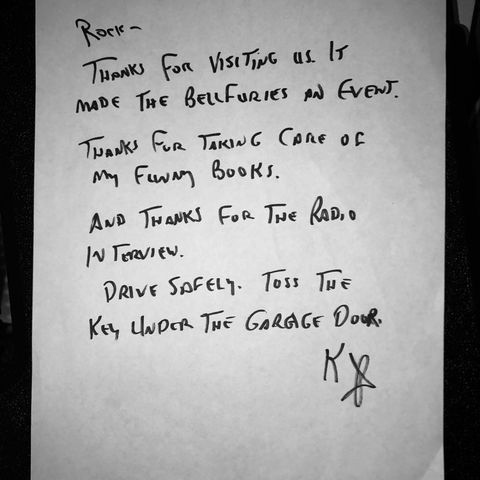 Rock–
THANKS FOR VISITING US. IT
MADE THE BELLFURIES AN EVENT.
THANKS FOR TAKING CARE OF
MY FUNNY BOOKS.
AND THANKS FOR THE RADIO
INTERVIEW.
DRIVE SAFELY. TOSS THE
KEY UNDER THE GARAGE DOOR.
K